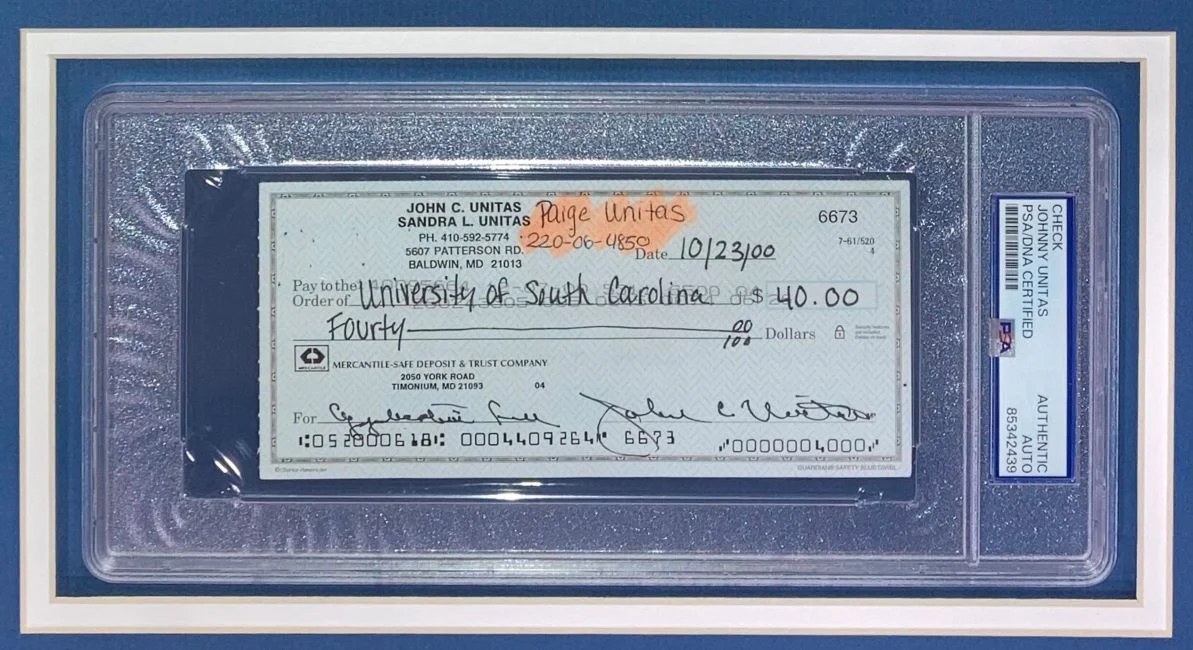 JOHN C. UNITAS Paige Unitas
SANDRA L. UNITAS
PH. 410-592-5774 220-06-4850
5607 PATTERSON RD.
BALDWIN, MD 21013
6673
7-61/520
4
Date 10/23/00
Pay to the
Order of University of South Carolina $ 40.00
Fourty 00/100 Dollars
MERCANTILE
MERCANTILE-SAFE DEPOSIT & TRUST COMPANY
2050 YORK ROAD
TIMONIUM, MD 21093 04
For John C Unitas
052000618 0004409264 6673 0000004000
GUARDIAN® SAFETY
CHECK
JOHNNY UNITAS
PSA/DNA CERTIFIED
AUTHENTIC
AUTO
85342439
PSA